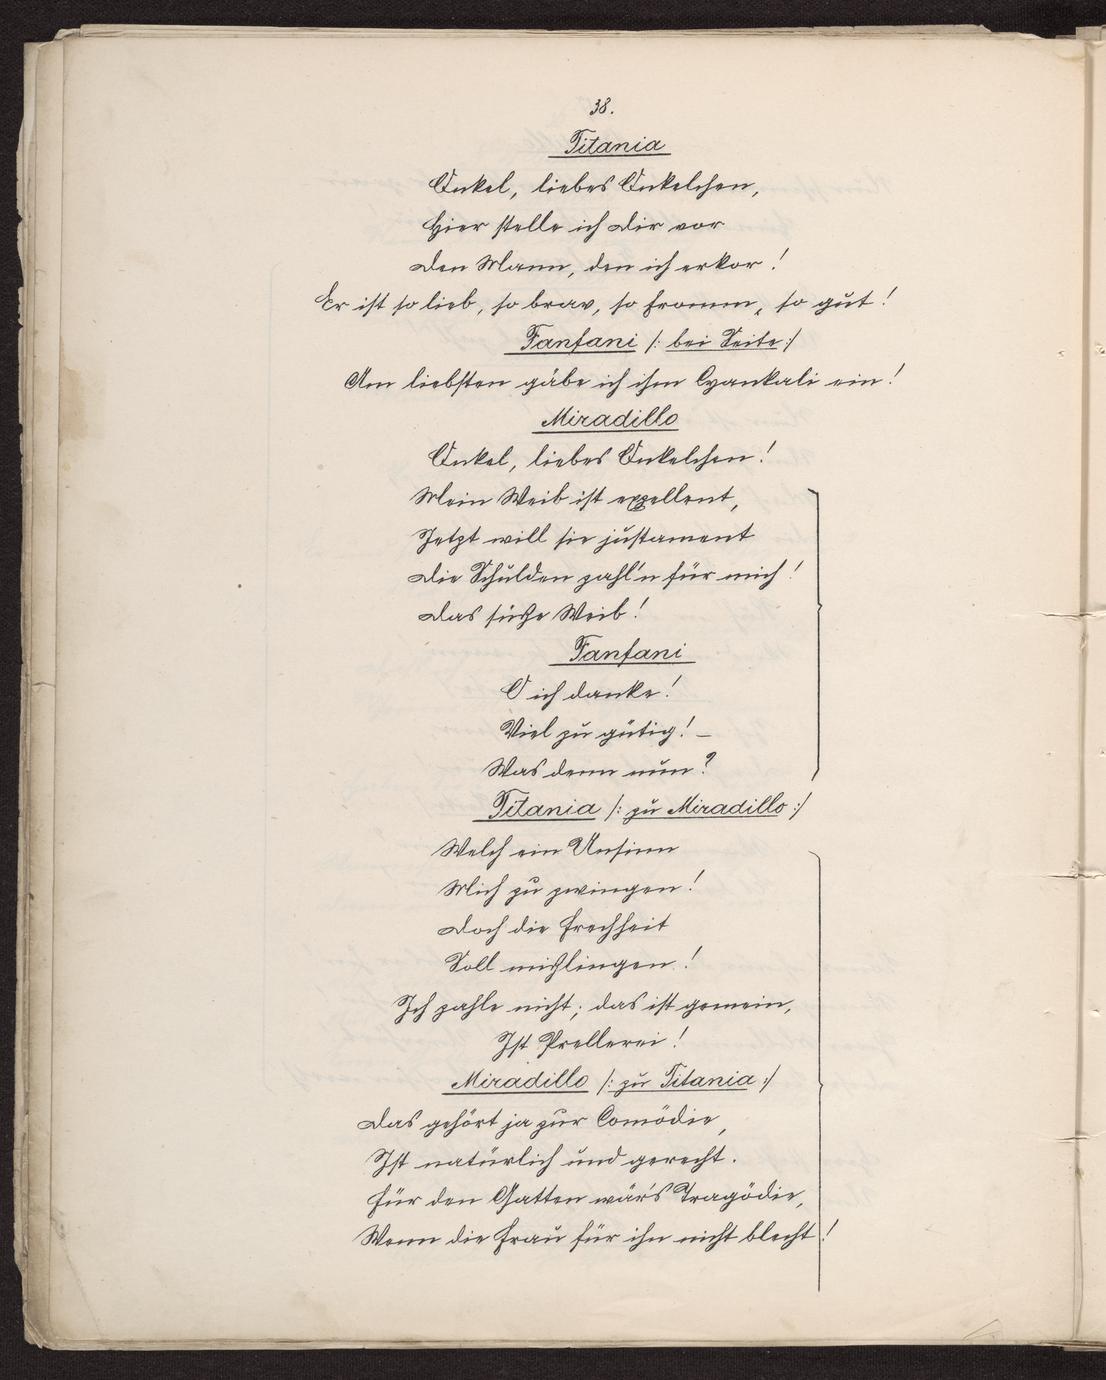 38.
Titania
Onkel, liebes Onkelchen,
Hier stelle ich Dir vor
Den Mann, den ich erkor!
Er ist so lieb, so brav, so fromm, so gut!
Fanfani /: bei Seite :/
Am liebsten gäbe ich ihm Cyankali ein!
Miradillo
Onkel, liebes Onkelchen!
Mein Weib ist expellent,
Jetzt will sie justament
Die Schulden zahl'n für mich!
Das süße Weib!
Fanfani
O ich danke!
Viel zu gütig! –
Was denn nun?
Titania /: zu Miradillo :/
Welch ein Unsinn
Mich zu zwingen!
Doch die Frechheit
Soll mißlingen!
Ich zahle nicht; das ist gemein,
Ist Prellerei!
Miradillo /: zu Titania :/
Das gehört ja zur Comödie,
Ist natürlich und gerecht.
Für den Gatten wär's Tragödie,
Wenn die Frau für ihn nicht blecht!